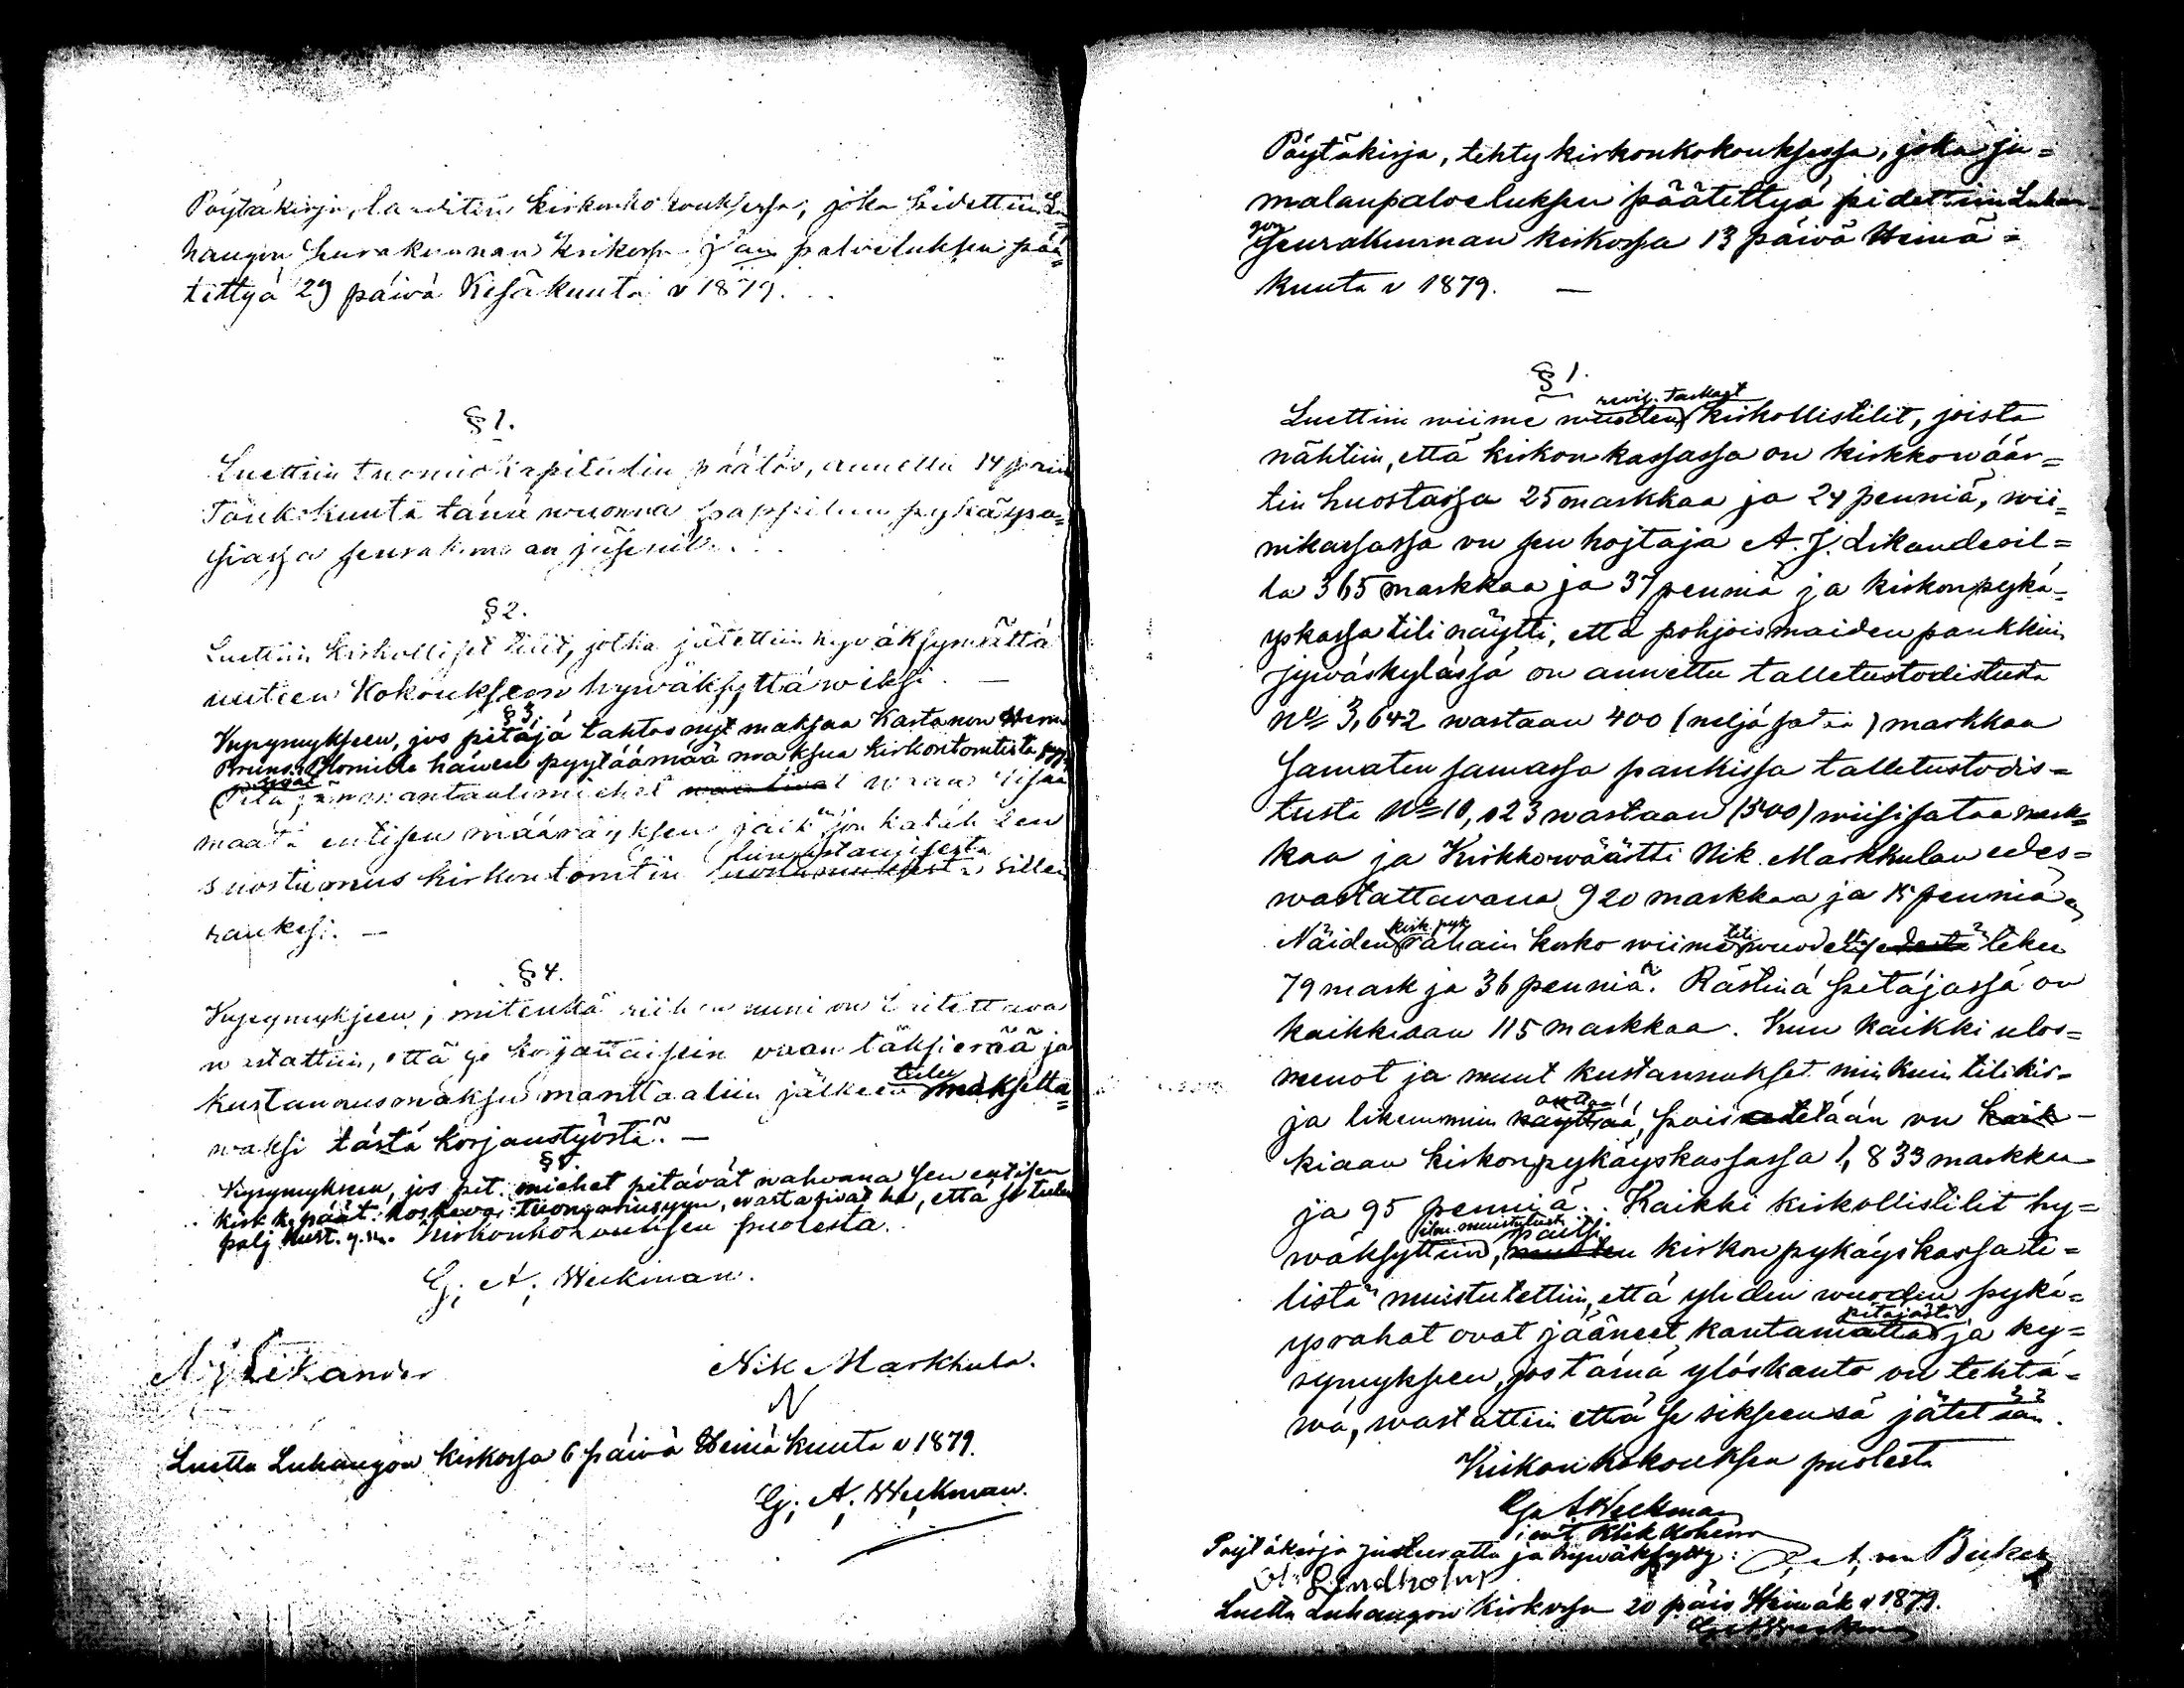 Pöytäkirja, laadittu kirkonkokouksessa, joka pidettiin Lu
hangon seurakunnan kirkossa Jum palveluksen pää
tettyä 29 päivä Kesäkuuta v 1879.
§ 1.
Luettiin tuomiokapitulin päätös, annettu 14 päivä
Toukokuuta tänä wuonna pappilan pykäysa=
siassa seurakunnan jäsenille.
§ 2.
Luettiin kirkolliset tilit, jotka jätettiin hyväksymättä
uuteen Kokoukseen hywäksyttäwiksi. —
§ 3.
Kysymykseen, jos pitäjä tahtoo nyt maksaa Kartanon Herra
Bruno Blomille hänen pyytäämää maksua kirkontontista
maata entisen määräyksen
suostumus kirkontontin lunastamisesta sillen
raukesi. —
§ 4.
Kysymykseen, mitenkä riihen uuni on laitettava
wastattiin, että se korjataisiin vaan täksi erää ja
kustannusmaksu manttaalin jälkeen tulee maksetta=
waksi tästä korjaustyöstä. —
§ 5.
Kysymykseen, jos pit. miehet pitävät wahvana sen entisen
kirk k. päät. koskeva tuon, wastasivat he, että se tulee
palj kust. y. m. Kirkonkokouksen puolesta.
G. A. Weckman.
A. J. Likander
Nik Markkula.
N
Luettu Luhangon kirkossa 6 päivä Heinäkuuta v 1879.
G. A. Weckman.
Pöytäkirja, tehty kirkonkokouksessa, joka ju=
malanpaloeluksen päätettyä pidettiin Luhan=
gon seurakunnan kirkossa 13 päivä Heinä=
kuuta v 1879. —
§ 1.
revis. tarkast
Luettiin wiime wuoden kirkollistilit, joista
nähtiin, että kirkon kassassa on kirkkowäär=
tin huostassa 25 markkaa ja 24 penniä, wii=
nikassassa on sen hojtaja A. J. Likanderil=
la 365 markkaa ja 37 penniä ja kirkonpykä=
yskassa tili näytti, että pohjoismaiden pankkiin
jywäskylässä on annettu talletustodistusta
No 3,642 wastaan 400 (neljä sataa) markkaa
Samaten samassa pankissa talletustodis=
tusta No 10,023 wastaan (500) wiisisataa mark=
kaa ja Kirkkowäärtti Nik. Markkulan edes=
wastattavana 920 markkaa ja 15 penniä
kirk. pyk tili
Näiden rahain korko wiime wuodelta tekee
79 mark ja 36 penniä. Rästinä pitäjässä on
kaikkiaan 115 markkaa. Kun kaikki ulos=
menot ja muut kustannukset niinkuin tilikir=
ja likemmin osottaa, pois otetään on kaik=
kiaan kirkonpykäyskassassa 1,833 markkaa
ja 95 penniä. Kaikki kirkollistilit hy=
ilm. muistutust. paitsi
wäksyttiin, muuten kirkon pykäyskassa ti=
listä muistutettiin, että yhden wuoden pykä=
pitäjästä
ysrahat ovat jääneet kantamatta ja ky=
symykseen, jos tämä ylöskanto on tehtä=
wä, wastattiin että se siksensä jätetään.
Kirkonkokouksen puolesta
G A Weckman
Pöytäkirja justeerattu ja hywäksytty:
Lindholm
Luettu Luhangon kirkossa 20 päiv Heinäk v 1879.
G A Weckman